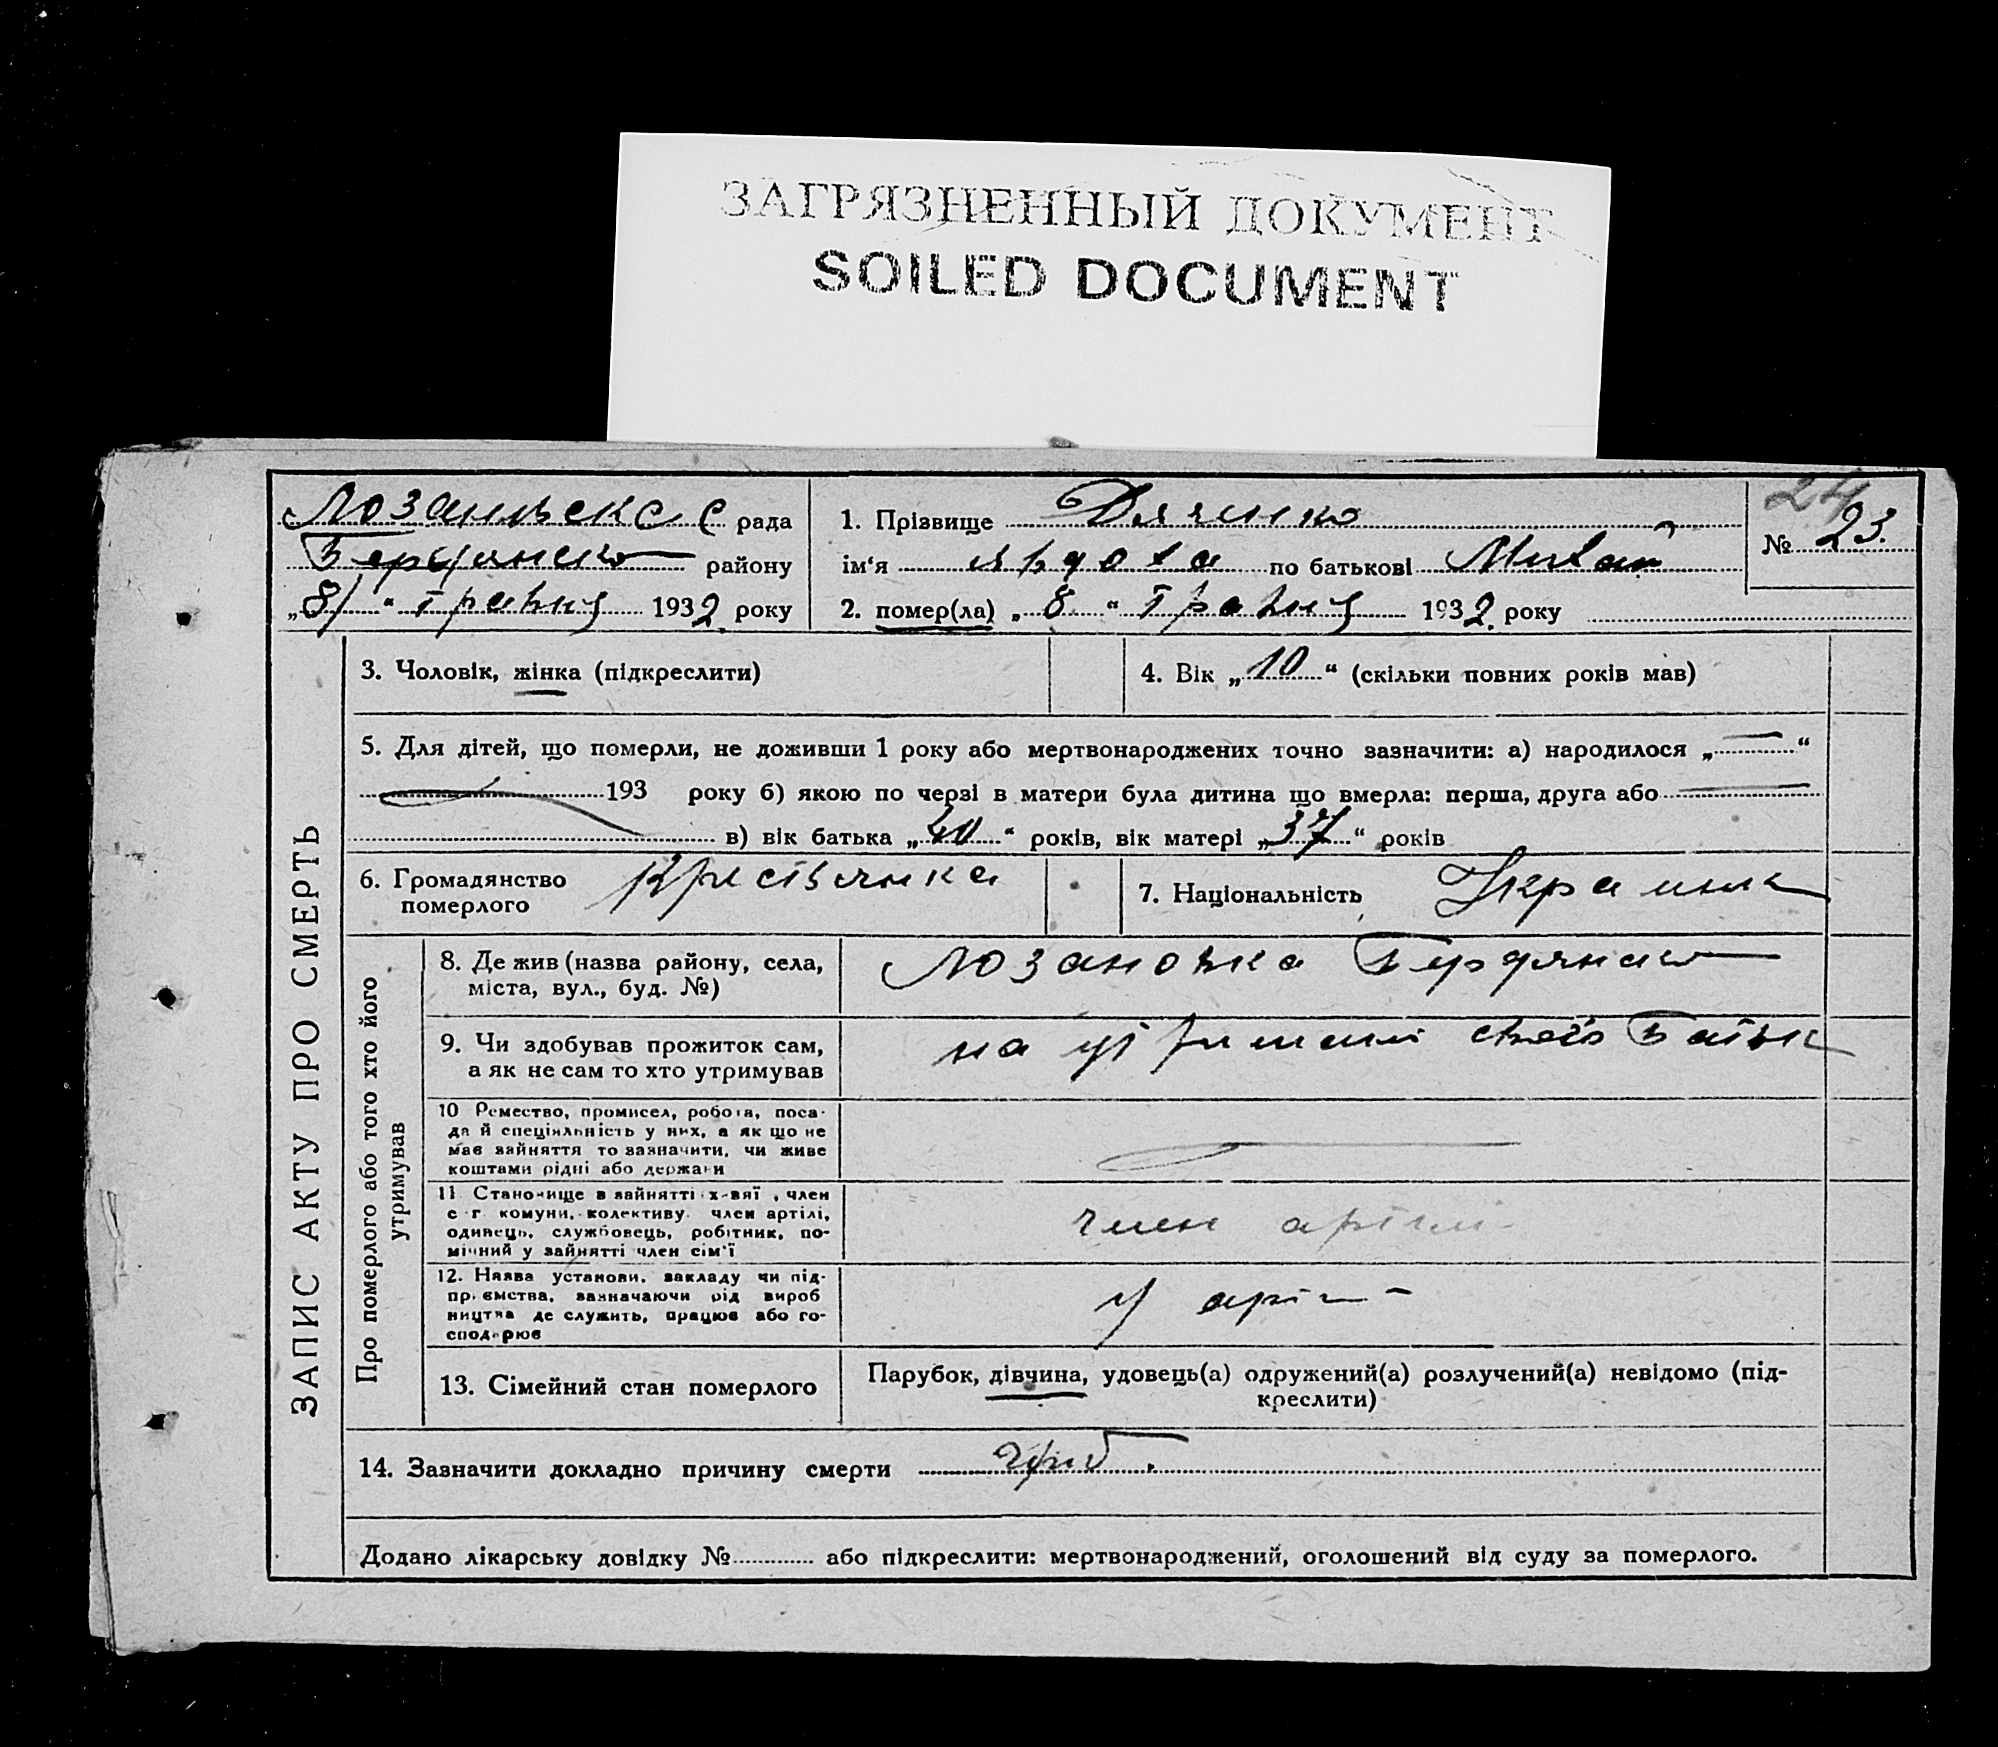 ЗАГРЯЗНЕННЫЙ ДОКУМЕНТ
SOILED DOCUMENT
24
рада
району
„8“ травня 1932 року
1. Прізвище Дяченко
ім'я по батькові
2. помер(ла) „8“ травня 1932 року
№ 23.
ЗАПИС АКТУ ПРО СМЕРТЬ
3. Чоловік, жінка (підкреслити)
4. Вік „10“ (скільки повних років мав)
5. Для дітей, що померли, не доживши 1 року або мертвонароджених точно зазначити: а) народилося „—“
193 року б) якою по черзі в матери була дитина що вмерла: перша, друга або —
в) вік батька „40“ років, вік матері „37“ років
6. Громадянство
померлого Крестянка
7. Національність
Про померлого або того хто його
утримував
8. Де жив (назва району, села,
міста, вул., буд. №)
Лозановка
9. Чи здобував прожиток сам,
а як не сам то хто утримував
на
10 Ремество, промисел, робота, поса-
да й спеціяльність у них, а як що не
має зайняття то зазначити, чи живе
коштами рідні або держави
11 Становище в зайнятті: х-вяї, член
с-г. комуни, колективу, член артілі,
одинець, службовець, робітник, по-
мічний у зайнятті член сім'ї
член артілі
12. Назва установи, закладу чи під-
приємства, зазначаючи рід вироб
ництва де служить, працює або го-
сподарює
у
13. Сімейний стан померлого
Парубок, дівчина, удовець(а) одружений(а) розлучений(а) невідомо (під-
креслити)
14. Зазначити докладно причину смерти
Додано лікарську довідку № або підкреслити: мертвонароджений, оголошений від суду за померлого.